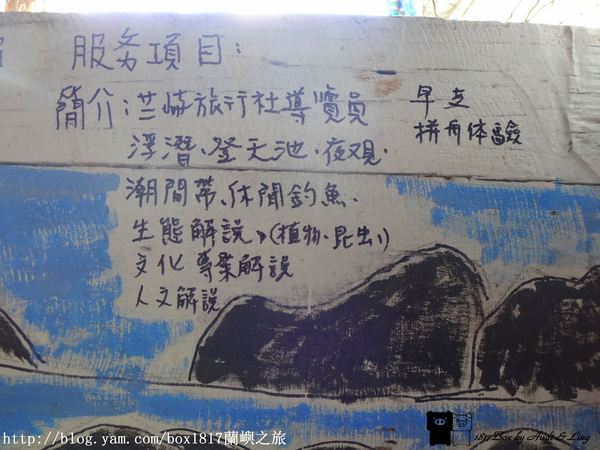 服务項目:
簡介:兰嶼旅行社導覽員
浮潛、登天池、夜观.
潮間帶、休閒釣魚.
生態解說、(植物、昆虫、)
文化專業解說
人文解說
拼舟体驗
http://blog.yam.com/box1817蘭嶼之旅
1817Box by Hudi & Ling